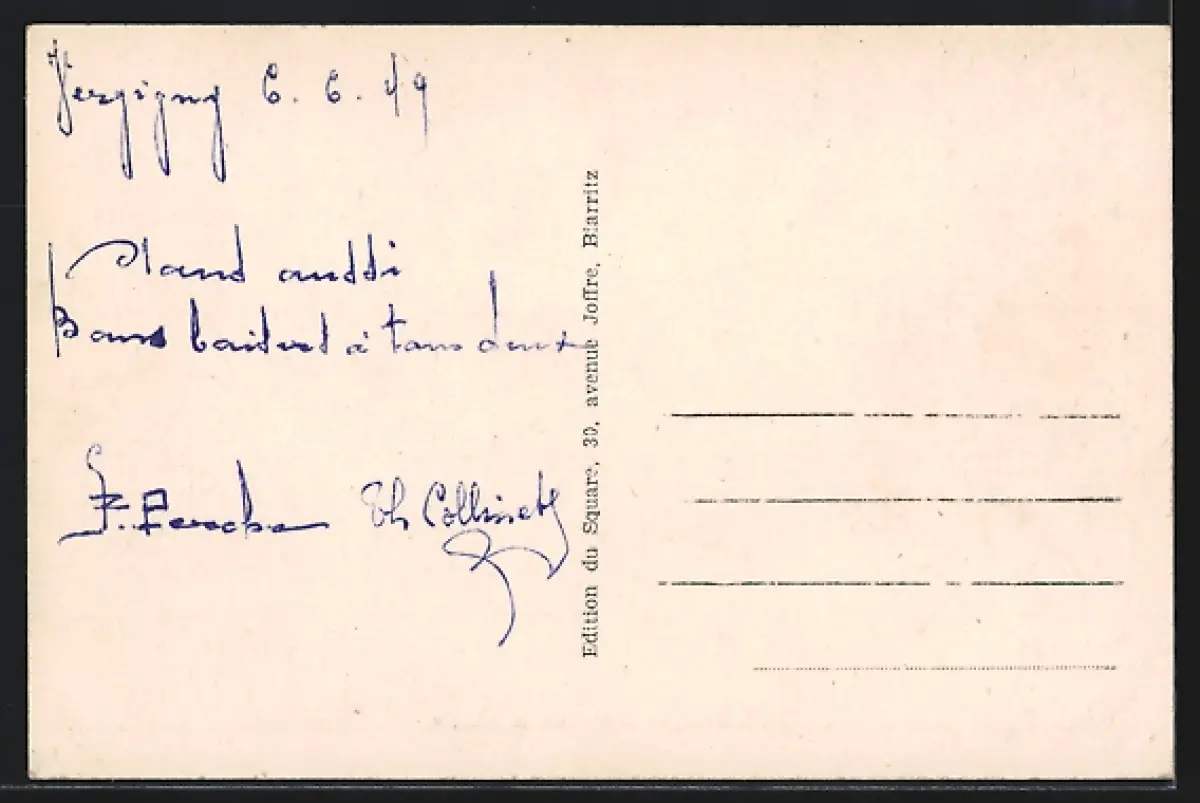 Vergigny 6. 6. 49
aussi
Bons baisers à tous deux
Th Collinet
Edition du Square, 30, avenue Joffre, Biarritz